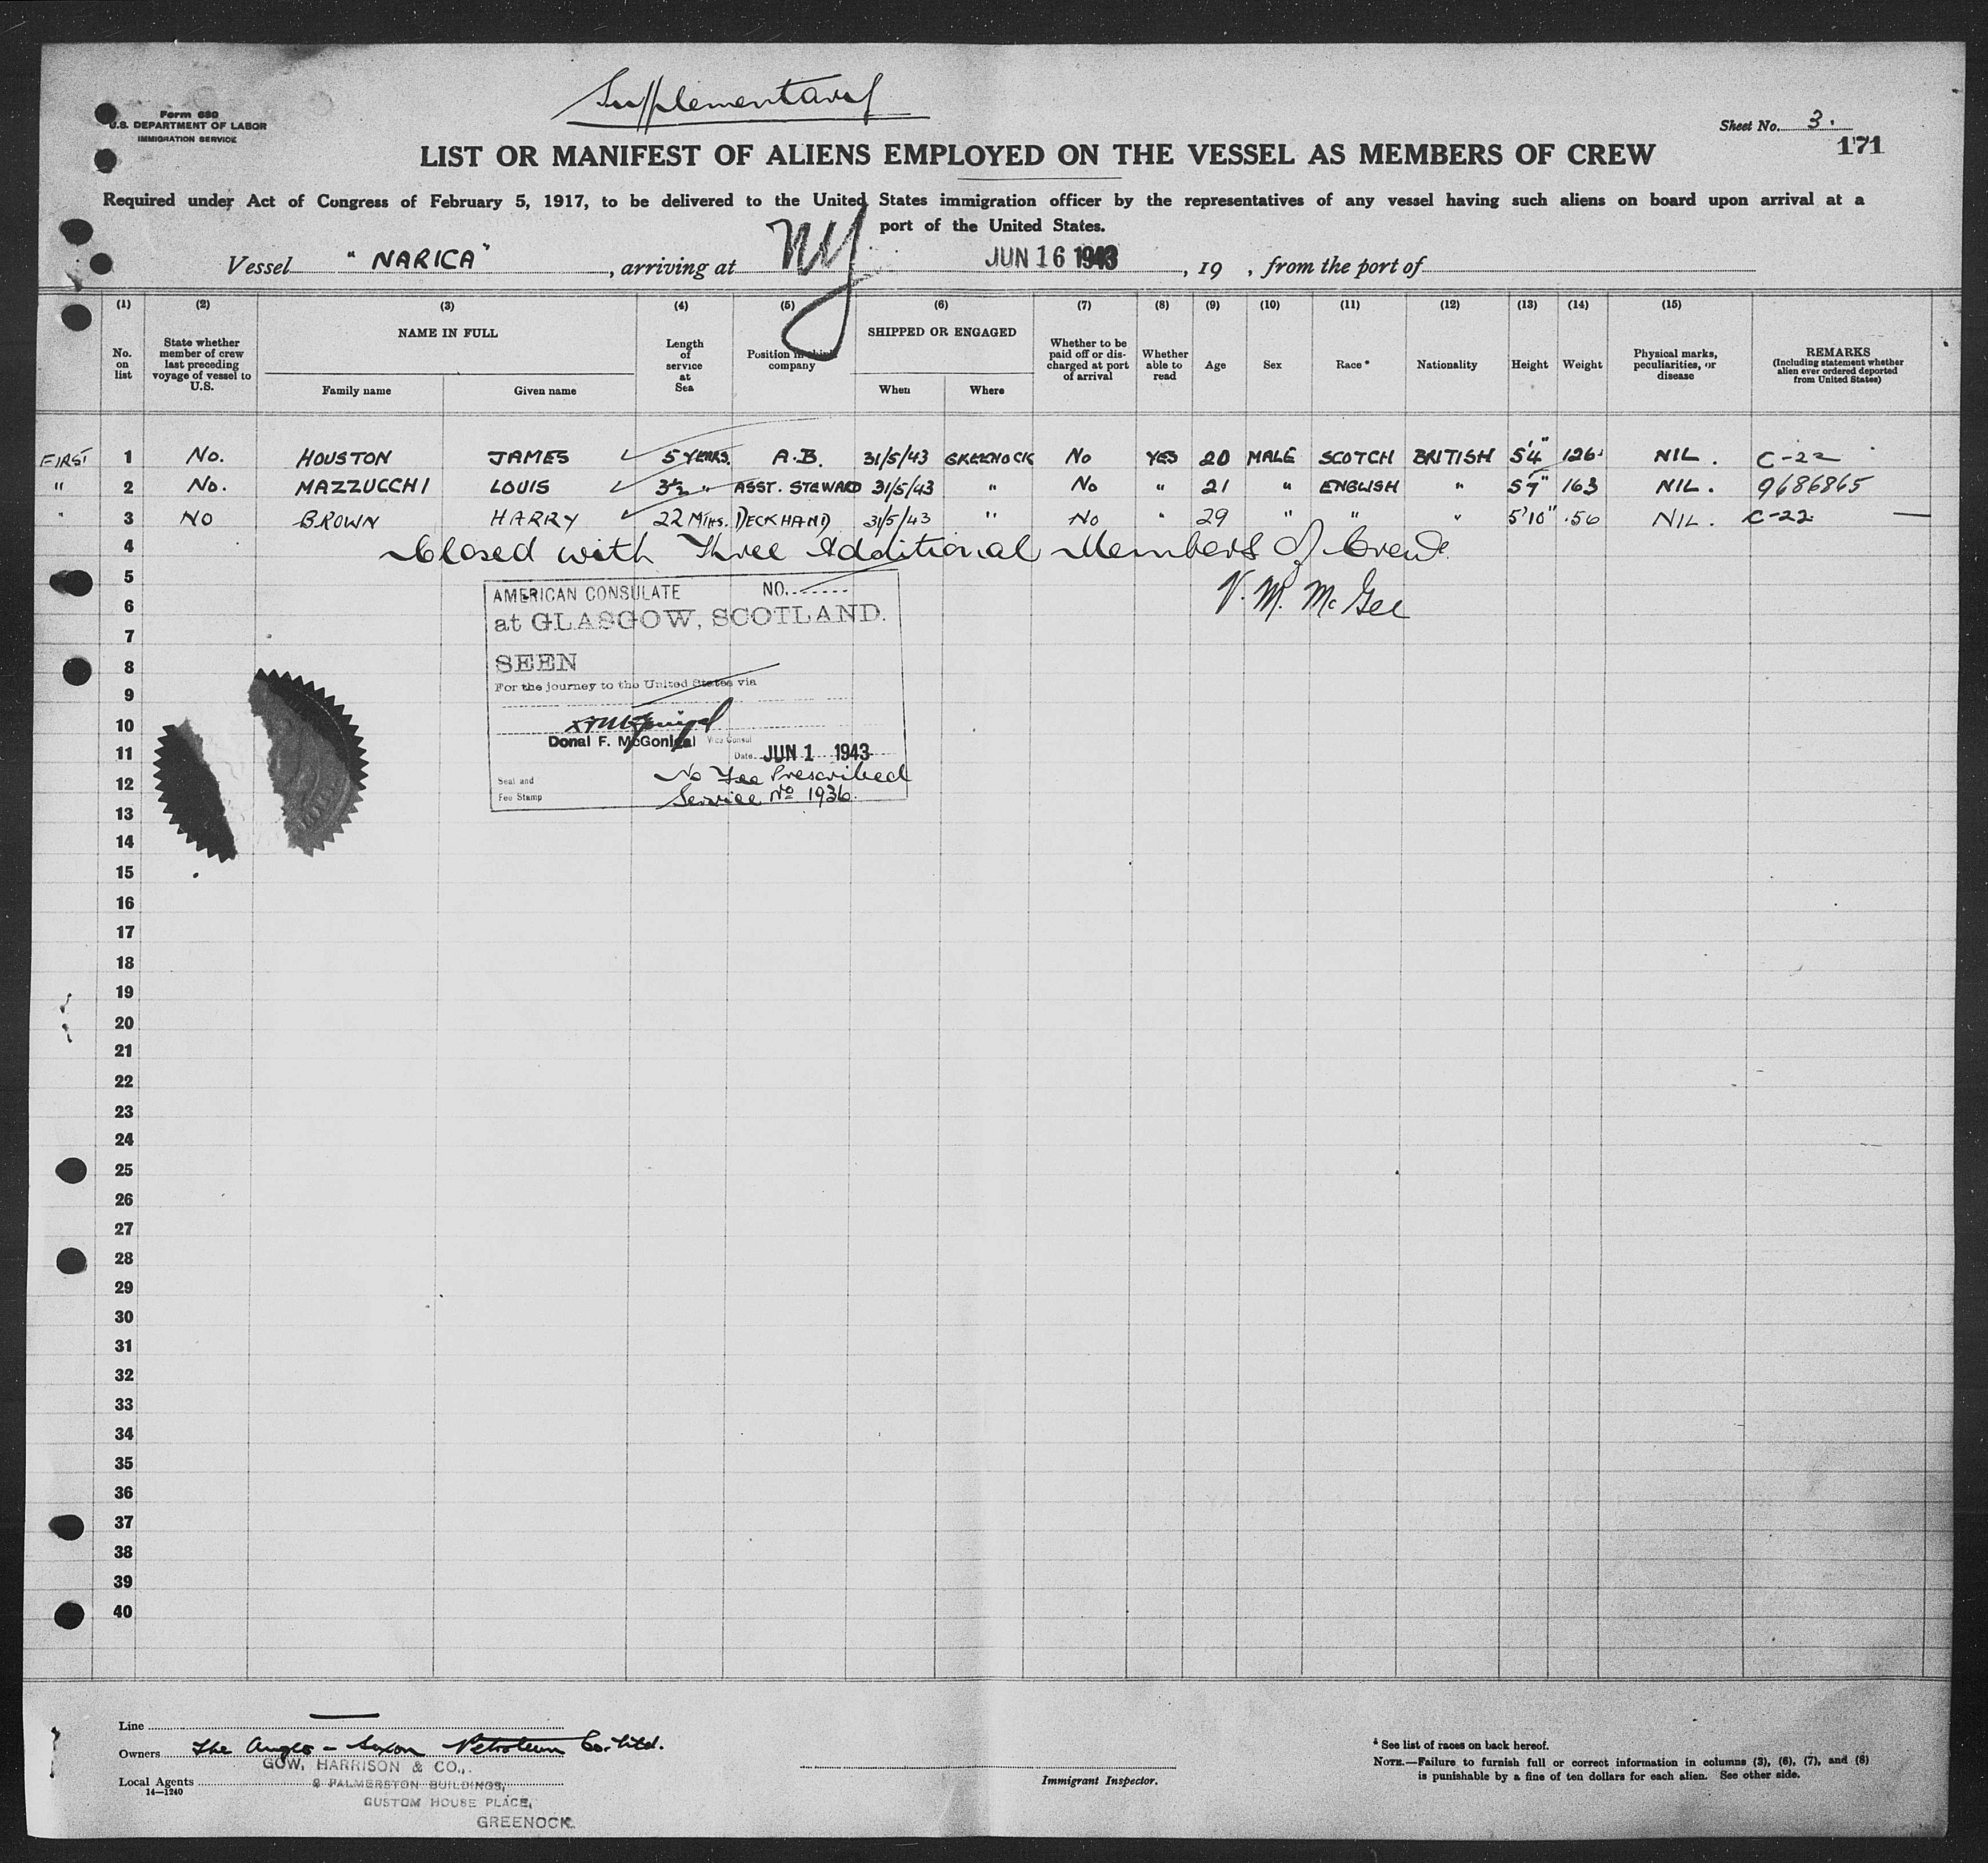 Supplementary
Form 680
U.S. DEPARTMENT OF LABOR
IMMIGRATION SERVICE
Sheet No. 3.
171
LIST OR MANIFEST OF ALIENS EMPLOYED ON THE VESSEL AS MEMBERS OF CREW
Required under Act of Congress of February 5, 1917, to be delivered to the United States immigration officer by the representatives of any vessel having such aliens on board upon arrival at a
port of the United States.
Vessel "NARICA", arriving at NY JUN 16 1943, 19 , from the port of
(1) (2) (3) (4) (5) (6) (7) (8) (9) (10) (11) (12) (13) (14) (15)
No. on list
State whether member of crew last preceding voyage of vessel to U.S.
NAME IN FULL
Family name Given name
Length of service at Sea
Position in ship's company
SHIPPED OR ENGAGED
When Where
Whether to be paid off or discharged at port of arrival
Whether able to read
Age Sex Race * Nationality Height Weight
Physical marks, peculiarities, or disease
REMARKS
(Including statement whether alien ever ordered deported from United States)
FIRST 1 No. HOUSTON JAMES 5 YEARS. A.B. 31/5/43 GREENOCK No YES 20 MALE SCOTCH BRITISH 5'4" 126 NIL. C-22
" 2 No. MAZZUCCHI LOUIS 3½ " ASST. STEWARD 31/5/43 " No " 21 " ENGLISH " 5'7" 163 NIL. 9686865
" 3 NO BROWN HARRY 22 MTHS. DECKHAND 31/5/43 " No " 29 " " " 5'10" 156 NIL. C-22
4 Closed with Three Additional Members of Crew.
5 V. M. McGee
6
7
8
9
10
11
12
13
14
15
16
17
18
19
20
21
22
23
24
25
26
27
28
29
30
31
32
33
34
35
36
37
38
39
40
AMERICAN CONSULATE NO.
at GLASGOW, SCOTLAND.
SEEN
For the journey to the United States via
Donal F. McGonigal Vice Consul
Date JUN 1 1943
Seal and
Fee Stamp
No Fee Prescribed
Service No 1936.
Line
Owners The Anglo-Saxon Petroleum Co. Ltd.
Local Agents GOW, HARRISON & CO.,
2 PALMERSTON BUILDINGS,
CUSTOM HOUSE PLACE,
GREENOCK.
14—1240
Immigrant Inspector.
* See list of races on back hereof.
NOTE.—Failure to furnish full or correct information in columns (3), (6), (7), and (8)
is punishable by a fine of ten dollars for each alien. See other side.